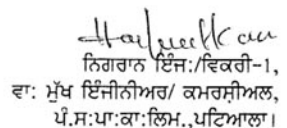 ਨਿਗਰਾਨ ਇੰਜ:/ਵਿਕਰੀ-1,
ਵਾ: ਮੁੱਖ ਇੰਜੀਨੀਅਰ/ ਕਮਰਸ਼ੀਅਲ,
ਪੰ.ਸ:ਪਾ:ਕਾ:ਲਿਮ.,ਪਟਿਆਲਾ।